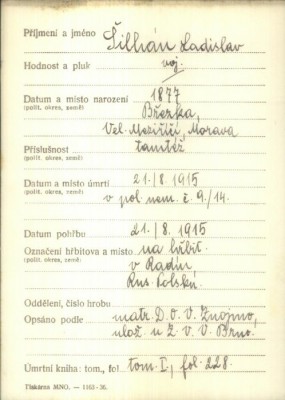 Příjmení a jméno Šillhán Ladislav
Hodnost a pluk voj.
Datum a místo narození 1877
(polit. okres, země) Březka,
Vel. Meziříčí, Morava
Příslušnost tamtéž
(polit. okres, země)
Datum a místo úmrtí 21./8. 1915
(polit. okres, země) v pol. nem. č. 9./14.
Datum pohřbu 21./8. 1915
Označení hřbitova a místo na hřbit.
(polit. okres, země) v Radin
Rus. Polsku.
Oddělení, číslo hrobu
Opsáno podle matr. D. O. V. Znojmo,
ulož. u Z. V. V. Brno.
Úmrtní kniha: tom., fol. tom I., fol. 228.
Tiskárna MNO. — 1163-36.